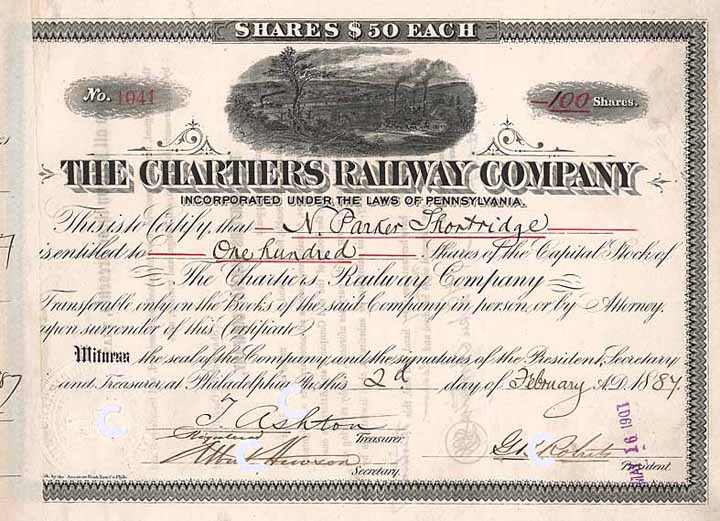 SHARES $50 EACH
No. 1941
100 Shares.
THE CHARTIERS RAILWAY COMPANY
INCORPORATED UNDER THE LAWS OF PENNSYLVANIA.
This is to Certify, that N. Parker Shortridge
is entitled to One hundred Shares of the Capital Stock of
The Chartiers Railway Company
Transferable only on the Books of the said Company in person or by Attorney
upon surrender of this Certificate
Witness the seal of the Company and the signatures of the President, Secretary
and Treasurer, at Philadelphia Pa. this 2d day of February A.D. 1887.
T. Ashton
Treasurer.
Registered
Albert Hewson
Secretary.
G.B. Roberts
President.
MAR 16 1901
by the American Bank Note Co. Phila.